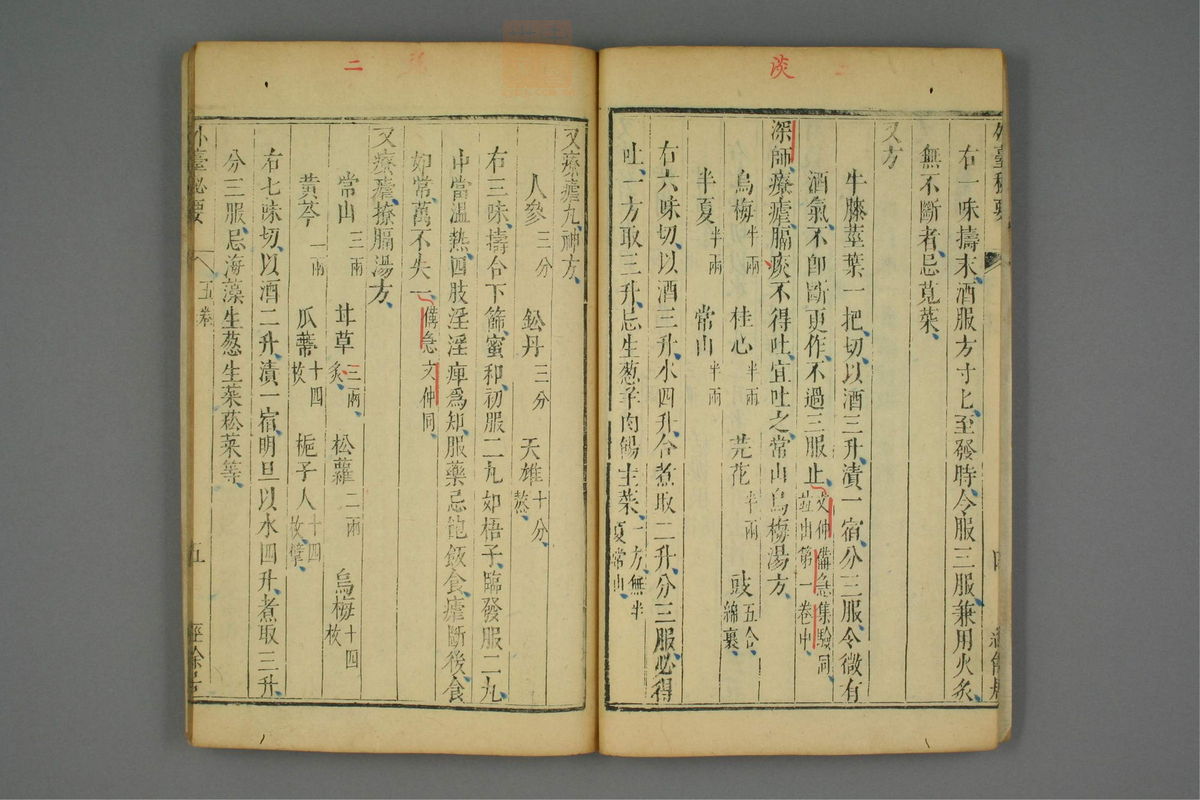 淡
右一味擣末酒服方寸匕至發時令服三服兼用火炙
無不斷者忌莧菜
又方
牛膝莖葉一把切以酒三升漬一宿分三服令微有
酒氣不卽斷更作不過三服止文仲備急集驗同
並出第一卷中
深師療瘧膈痰不得吐宜吐之常山烏梅湯方
烏梅半兩 桂心半兩 芫花半兩 豉五合綿裹
半夏半兩 常山半兩
右六味切以酒三升水四升合煮取二升分三服必得
吐一方取三升忌生葱羊肉餳生菜一方無半
夏常山
二
又療瘧九神方
人參三分 鈆丹三分 天雄十分蒸
右三味擣合下篩蜜和初服二丸如梧子臨發服二丸
中當溫熱四肢淫淫痺爲知服藥忌飽飯食瘧斷後食
如常萬不失一備急文仲同
又療瘧撩膈湯方
常山三兩 甘草三兩炙 松蘿二兩 烏梅十四枚
黃芩一兩 瓜蔕十四枚 梔子人十四枚擘
右七味切以酒二升漬一宿明旦以水四升煮取三升
分三服忌海藻生葱生菜菘菜等
外臺祕要 五卷 五 經餘居